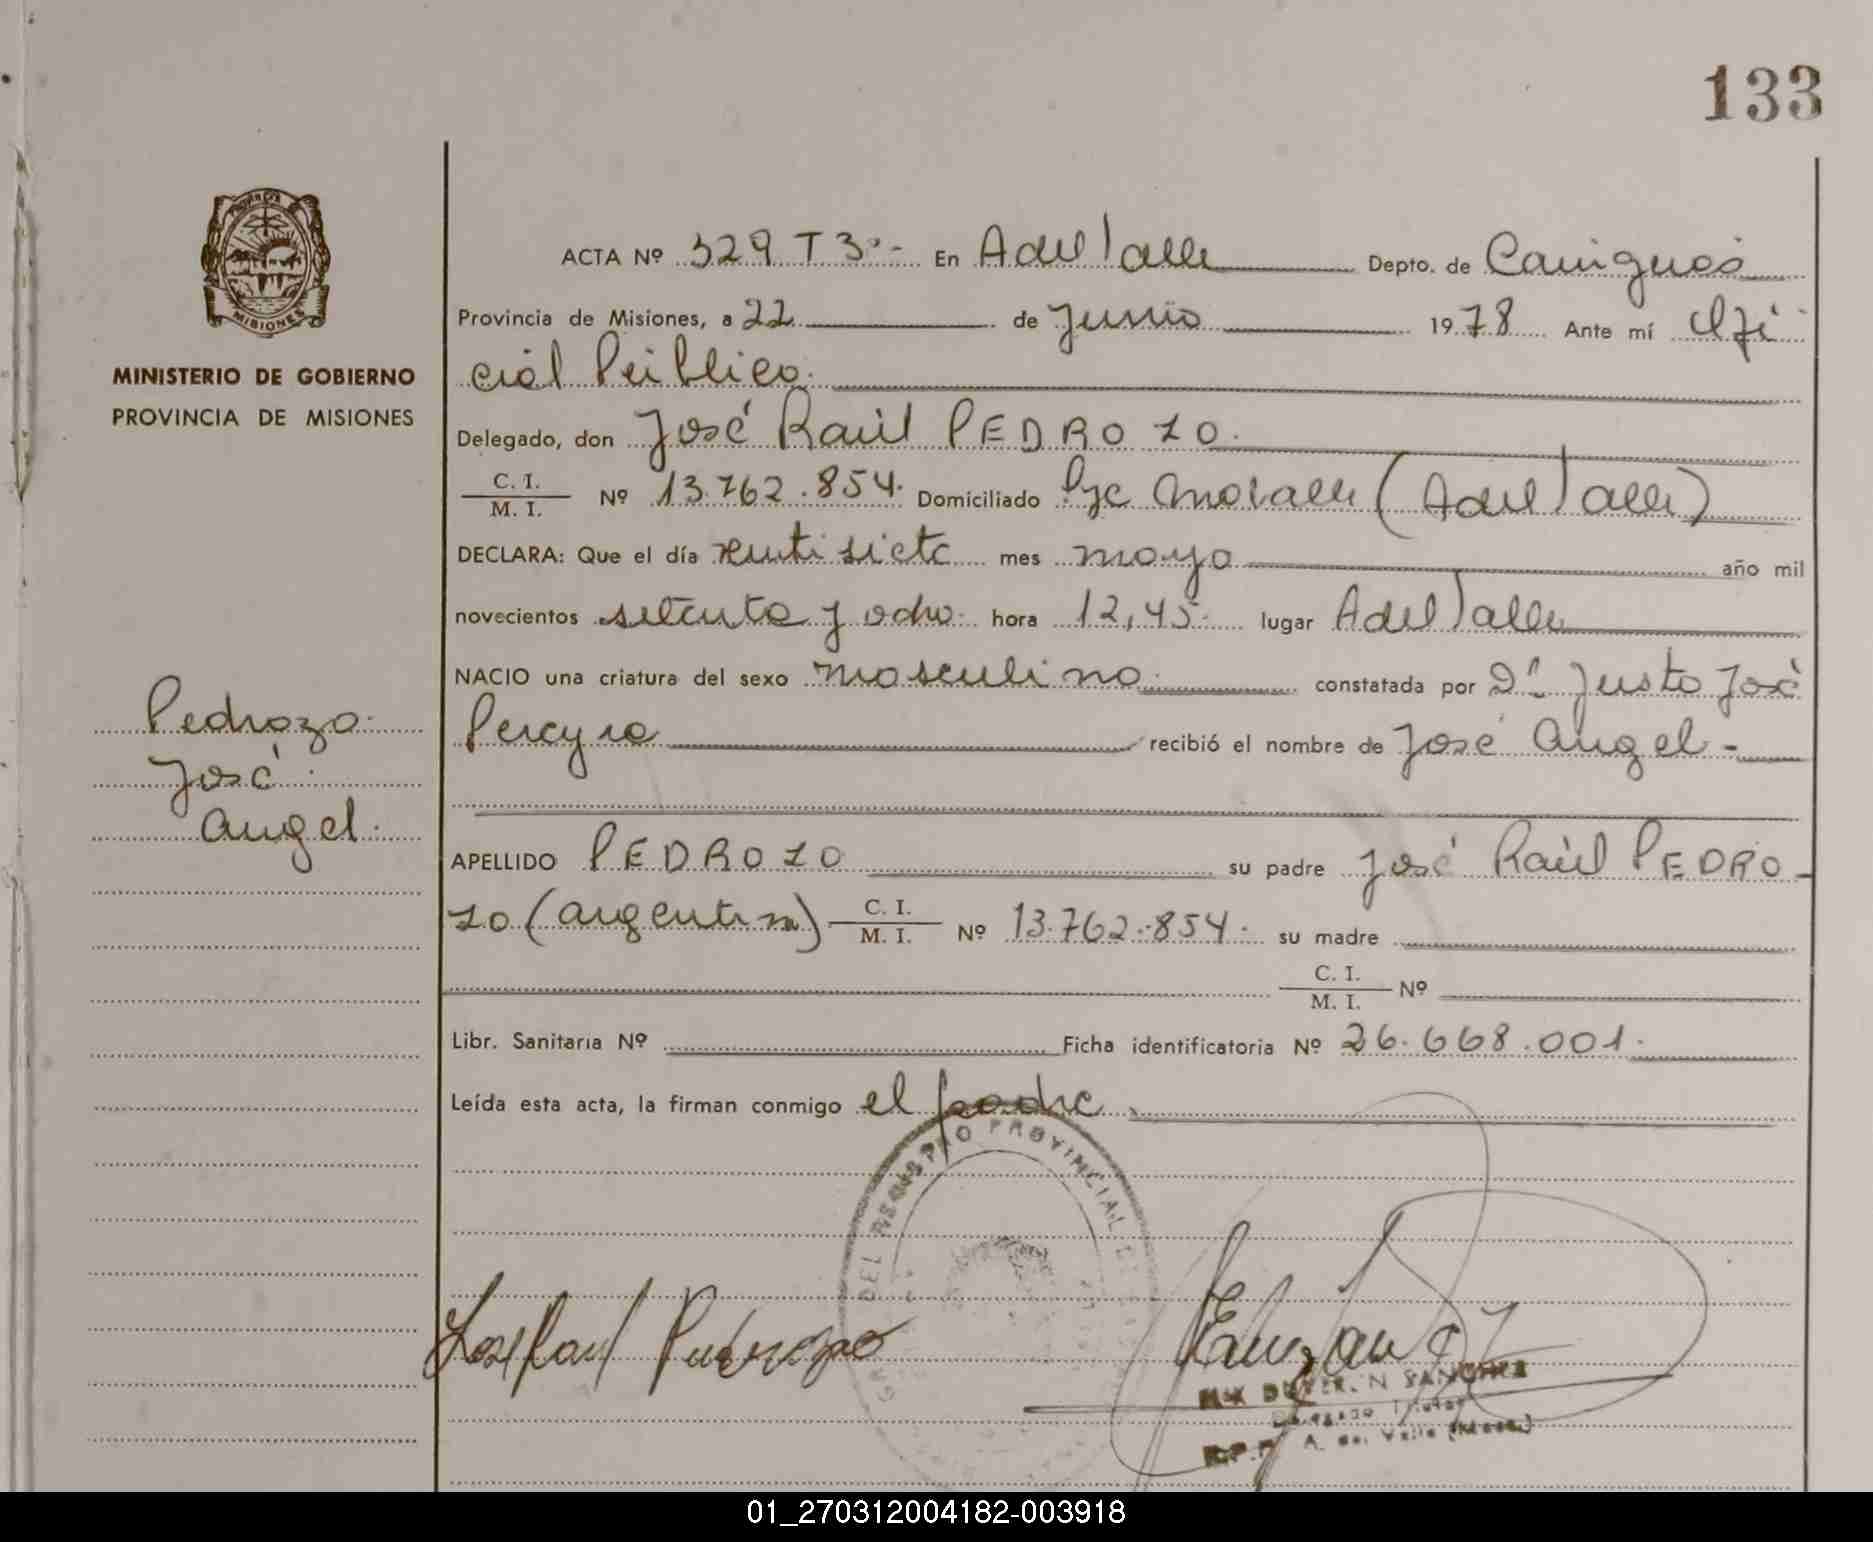 133
PROVINCIA
MISIONES
MINISTERIO DE GOBIERNO
PROVINCIA DE MISIONES
ACTA Nº 329 T 3º.- En A del Valle Depto. de Cainguás
Provincia de Misiones, a 22 de Junio 1978 Ante mí Ofi
cial Público.
Delegado, don José Raúl PEDROZO.
C. I.
M. I. Nº 13.762.854. Domiciliado Pje (A del Valle)
DECLARA: Que el día veinti siete mes mayo año mil
novecientos setenta y ocho. hora 12,45. lugar A del Valle
NACIO una criatura del sexo masculino. constatada por Dr. Justo José
Pereyra recibió el nombre de José Angel -
Pedrozo.
José.
Angel.
APELLIDO PEDROZO su padre José Raúl PEDRO-
ZO (argentino) C. I.
M. I. Nº 13.762.854. su madre
C. I.
M. I. Nº
Libr. Sanitaria Nº Ficha identificatoria Nº 26.668.001.
Leída esta acta, la firman conmigo el padre.
DEL REGISTRO PROVINCIAL DE
José Raul Pedrozo
SANCHEZ
Delegado Titular
A. del Valle (Mnes.)
01_270312004182-003918